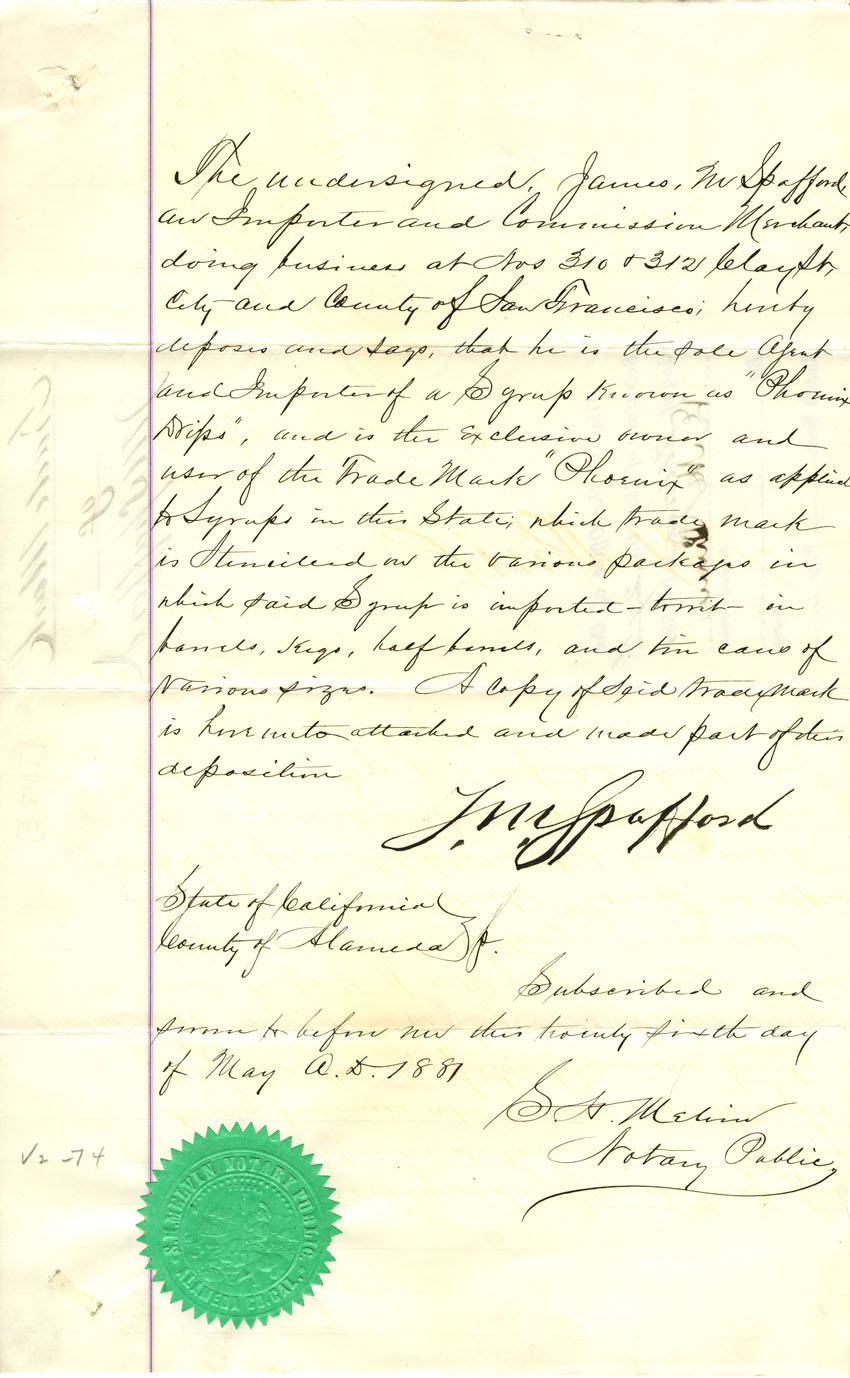 The undersigned, James, M Spafford
an Importer and Commission Merchant,
doing business at Nos 310 & 312 Clay St,
City and County of San Francisco; hereby
deposes and says, that he is the sole Agent
and Importer of a Syrup known as "Phoenix
Drips", and is the exclusive owner and
user of the Trade Mark "Phoenix" as applied
to Syrups in this State; which trade mark
is Stenciled on the various packages in
which said Syrup is imported - towit - in
barrels, kegs, half barrels, and tin cans of
various sizes. A copy of said trade mark
is hereunto attached and made part of this
deposition
J. M. Spafford
State of California
County of Alameda } ss.
Subscribed and
sworn to before me this twenty sixth day
of May A.D. 1881
S. H. Melvin
Notary Public
V2-74
S.H. MELVIN NOTARY PUBLIC.
ALAMEDA CO. CAL.